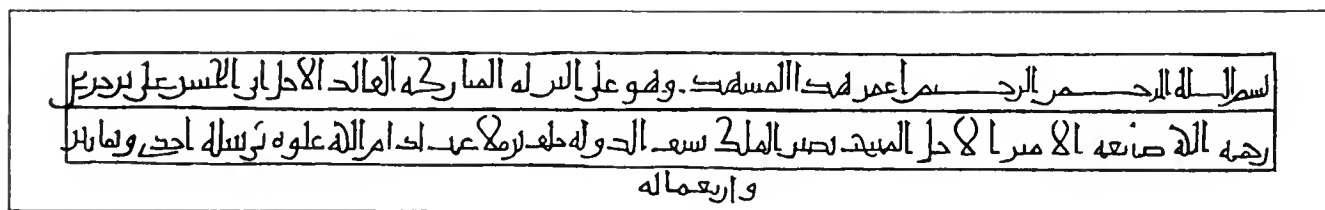 بسم الله الرحمن الرحيم اعمر هذا المشهد وهو على التربه المباركه القائد الاجل ابى الحسن على بن جرير
رحمه الله صانعه الامير الاجل نصير الملك سيف الدوله خلف بن ملاعب ادام الله علوه فى سنه احدى وثمانين
واربعمائه